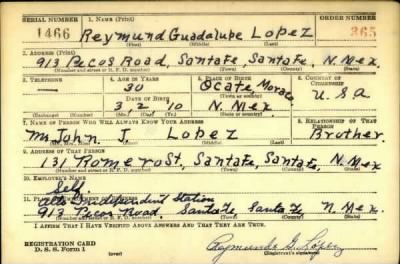 SERIAL NUMBER 1. Name (Print) ORDER NUMBER
1466 Reymund Guadalupe Lopez 365
(First) (Middle) (Last)
2. Address (Print)
913 Pecos Road, Santafe, Santafe, N. Mex
(Number and street or R. F. D. number) (Town) (County) (State)
3. Telephone 4. Age in Years 5. Place of Birth 6. Country of Citizenship
— 30 Ocate Mora Co
Date of Birth (Town or county)
3 2 10 N. Mex U.S.A
(Mo.) (Day) (Yr.) (State or country)
7. Name of Person Who Will Always Know Your Address 8. Relationship of That Person
Mr. John J. Lopez Brother
(Mr., Mrs., Miss) (First) (Middle) (Last)
9. Address of That Person
131 Romero St, Santafe, Santafe, N. Mex
(Number and street or R. F. D. number) (Town) (County) (State)
10. Employer's Name
Self.
Independent Station
11. Place of Employment or Business
913 Pecos Road. Santafe Santafe N. Mex.
(Number and street or R. F. D. number) (Town) (County) (State)
I Affirm That I Have Verified Above Answers and That They Are True.
REGISTRATION CARD
D. S. S. Form 1
Reymundo G. Lopez
(Registrant's signature)